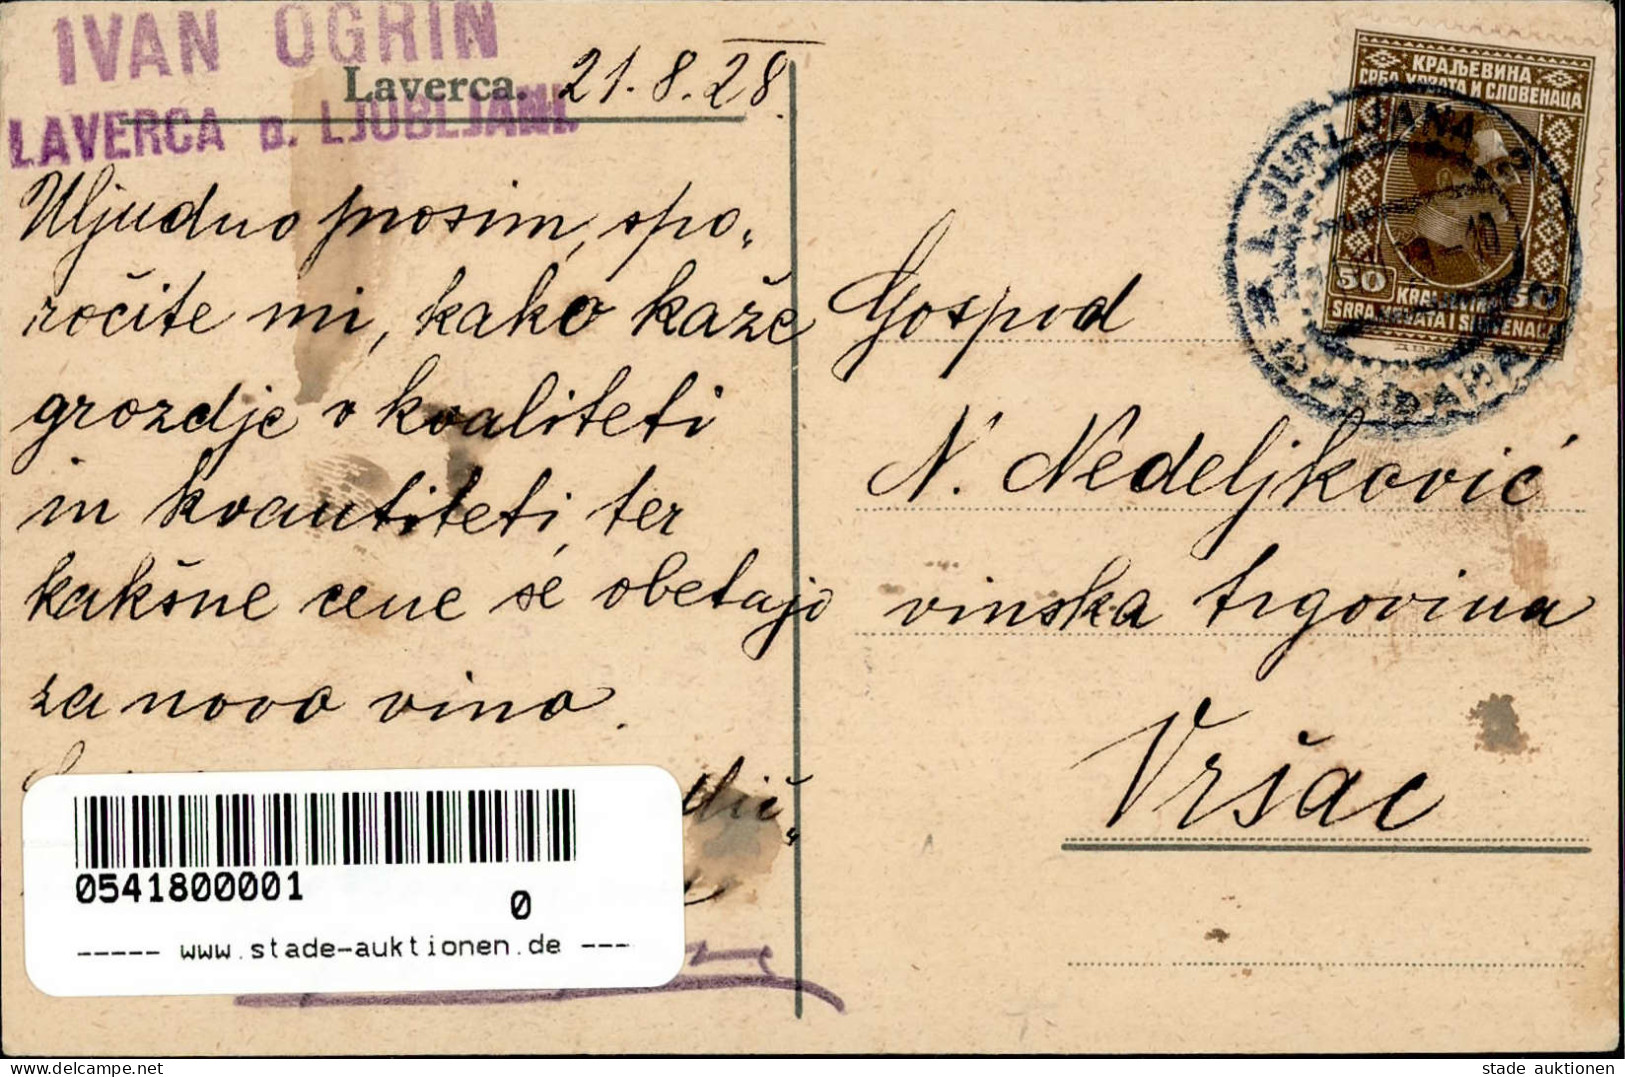 IVAN OGRIN
LAVERCA p. LJUBLJANI
Laverca. 21.8.28.
Uljudno prosim, spo„
ročite mi, kako kaže
grozdje v kvaliteti
in kvantiteti, ter
kakšne cene se obetajo
za novo vino.
КРАЉЕВИНА
СРБА ХРВАТА И СЛОВЕНАЦА
50
KRALJEVINA
SRBA HRVATA I SLOVENACA
LJUBLJANA
Gospod
N. Nedeljković
vinska trgovina
Vršac
0541800001
0
----- www.stade-auktionen.de ---
delcampe.net
stade auktionen